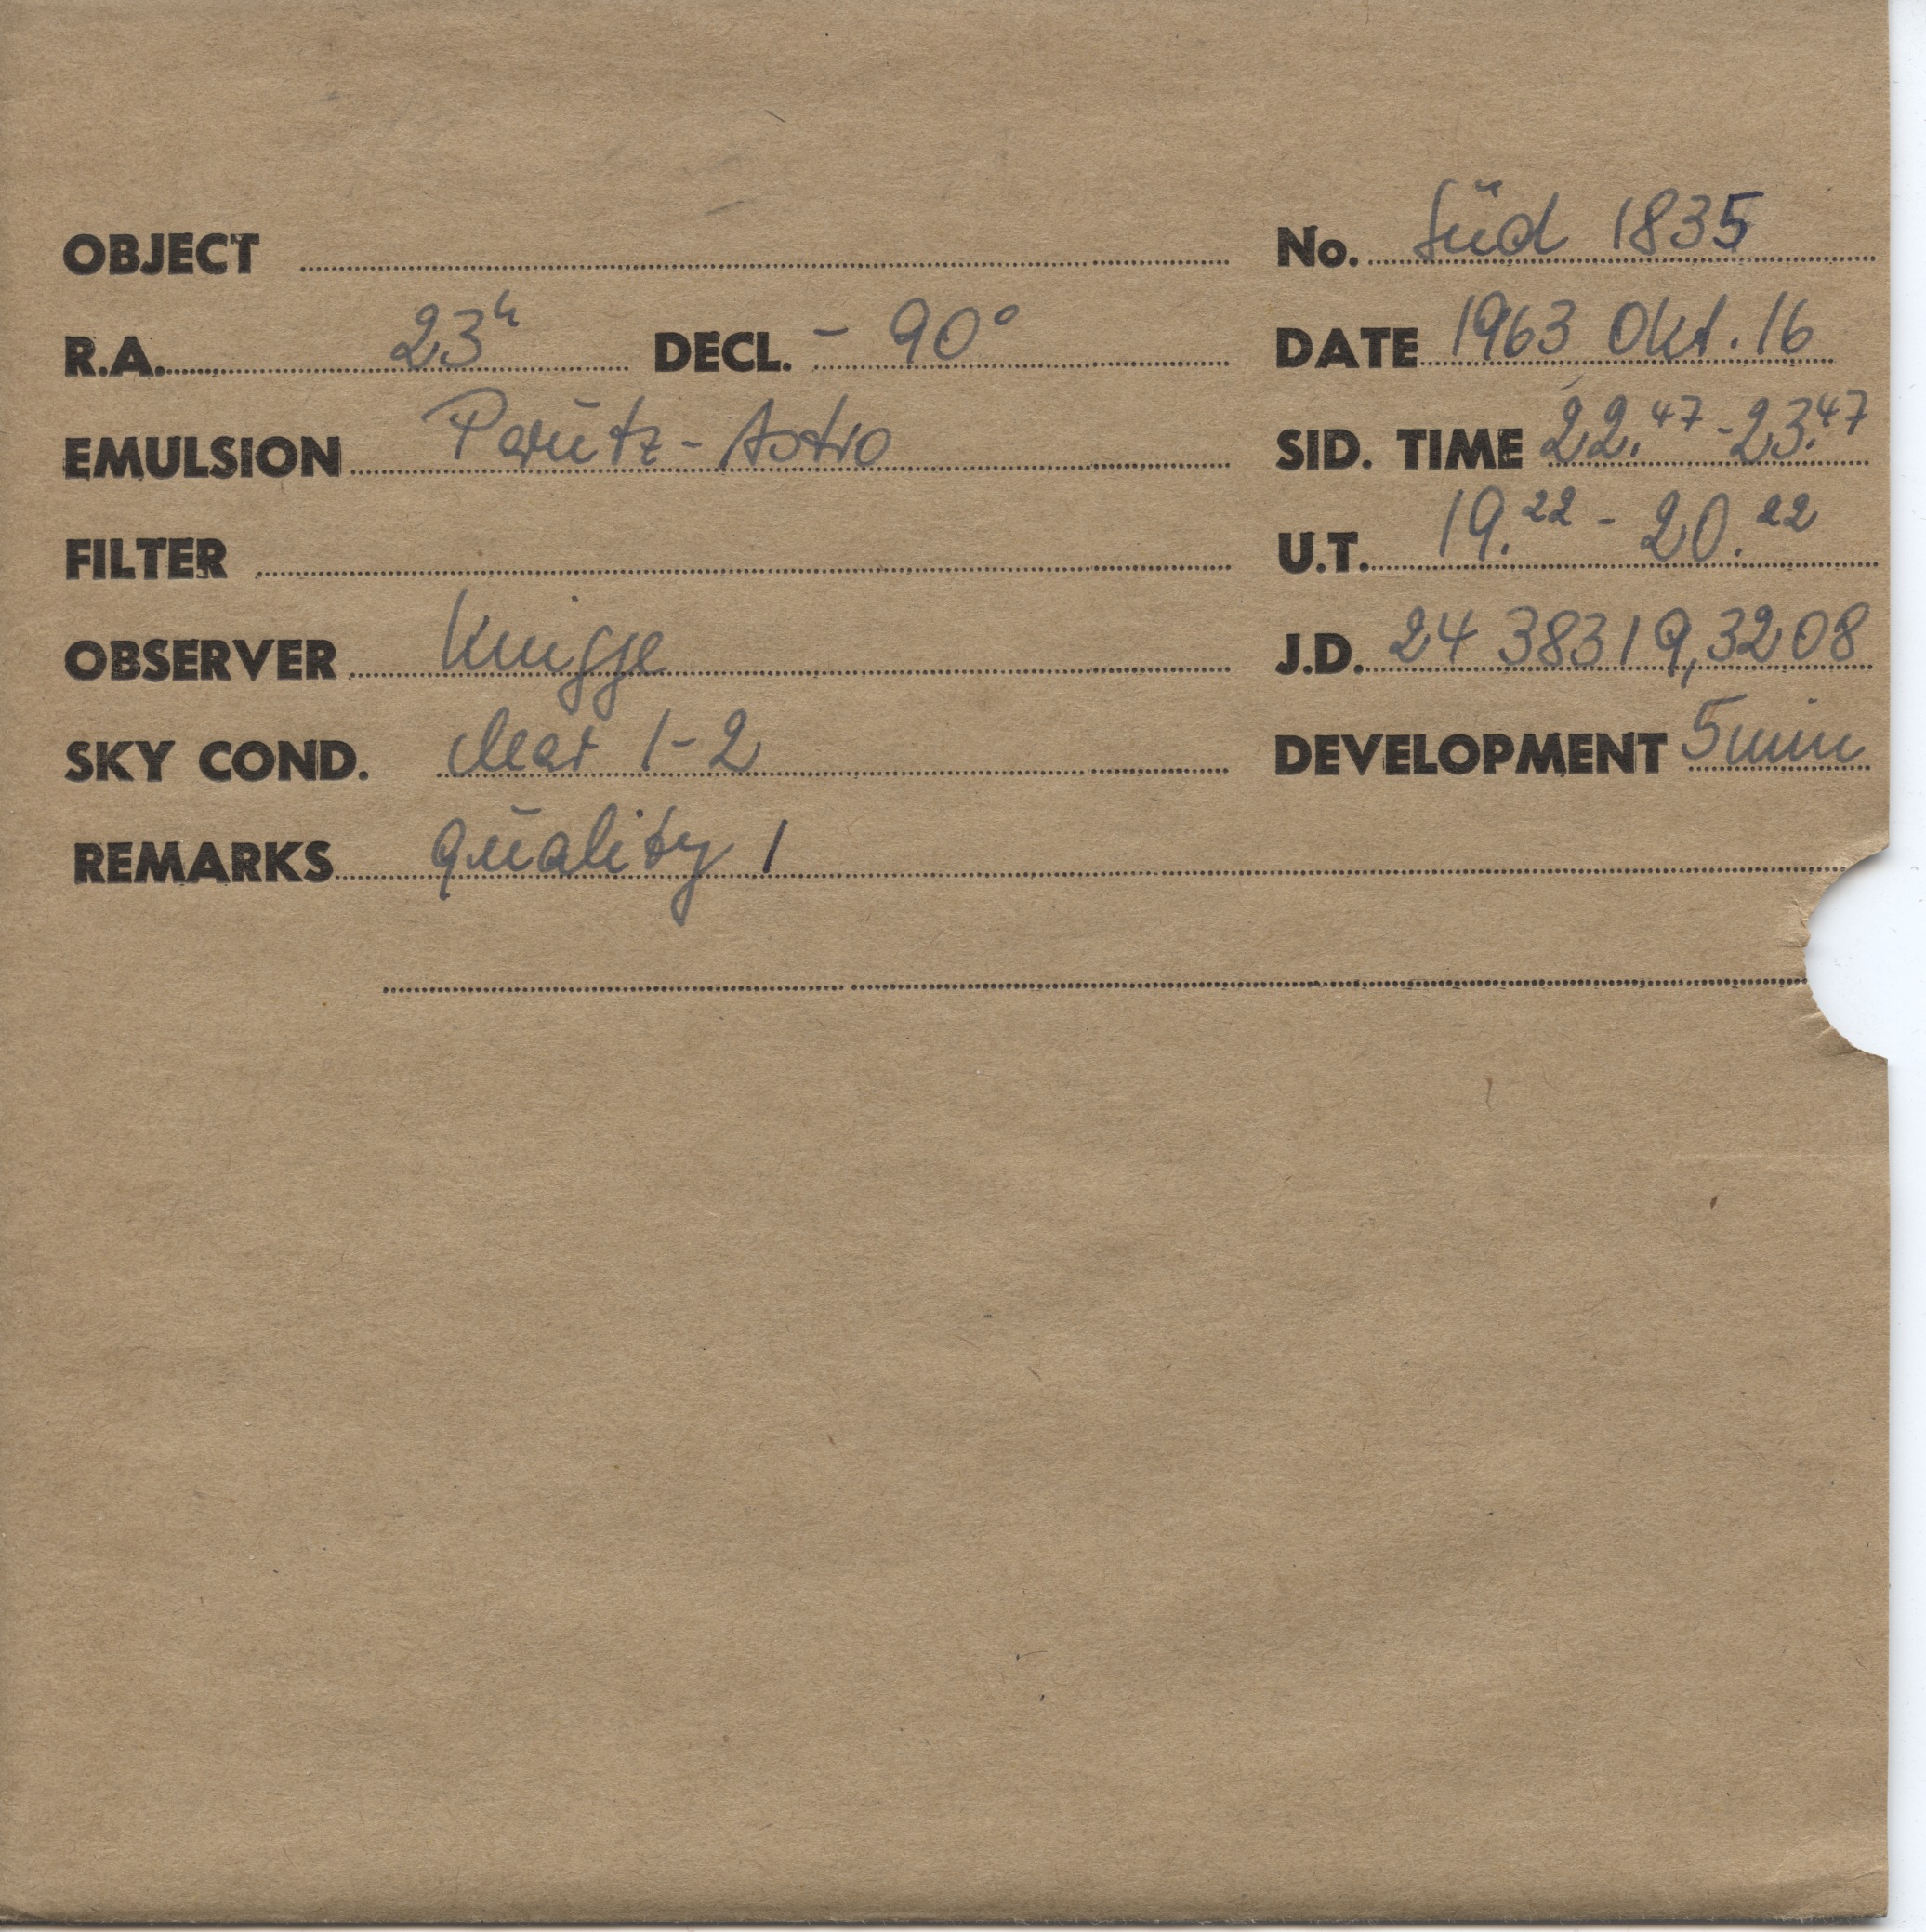 OBJECT No. Süd 1835
R.A. 23h DECL. - 90° DATE 1963 Okt. 16
EMULSION Perutz - Astro SID. TIME 22.47 - 23.47
FILTER U.T. 19.22 - 20.22
OBSERVER Knigge J.D. 24 38319,3208
SKY COND. clear 1-2 DEVELOPMENT 5 min
REMARKS quality 1